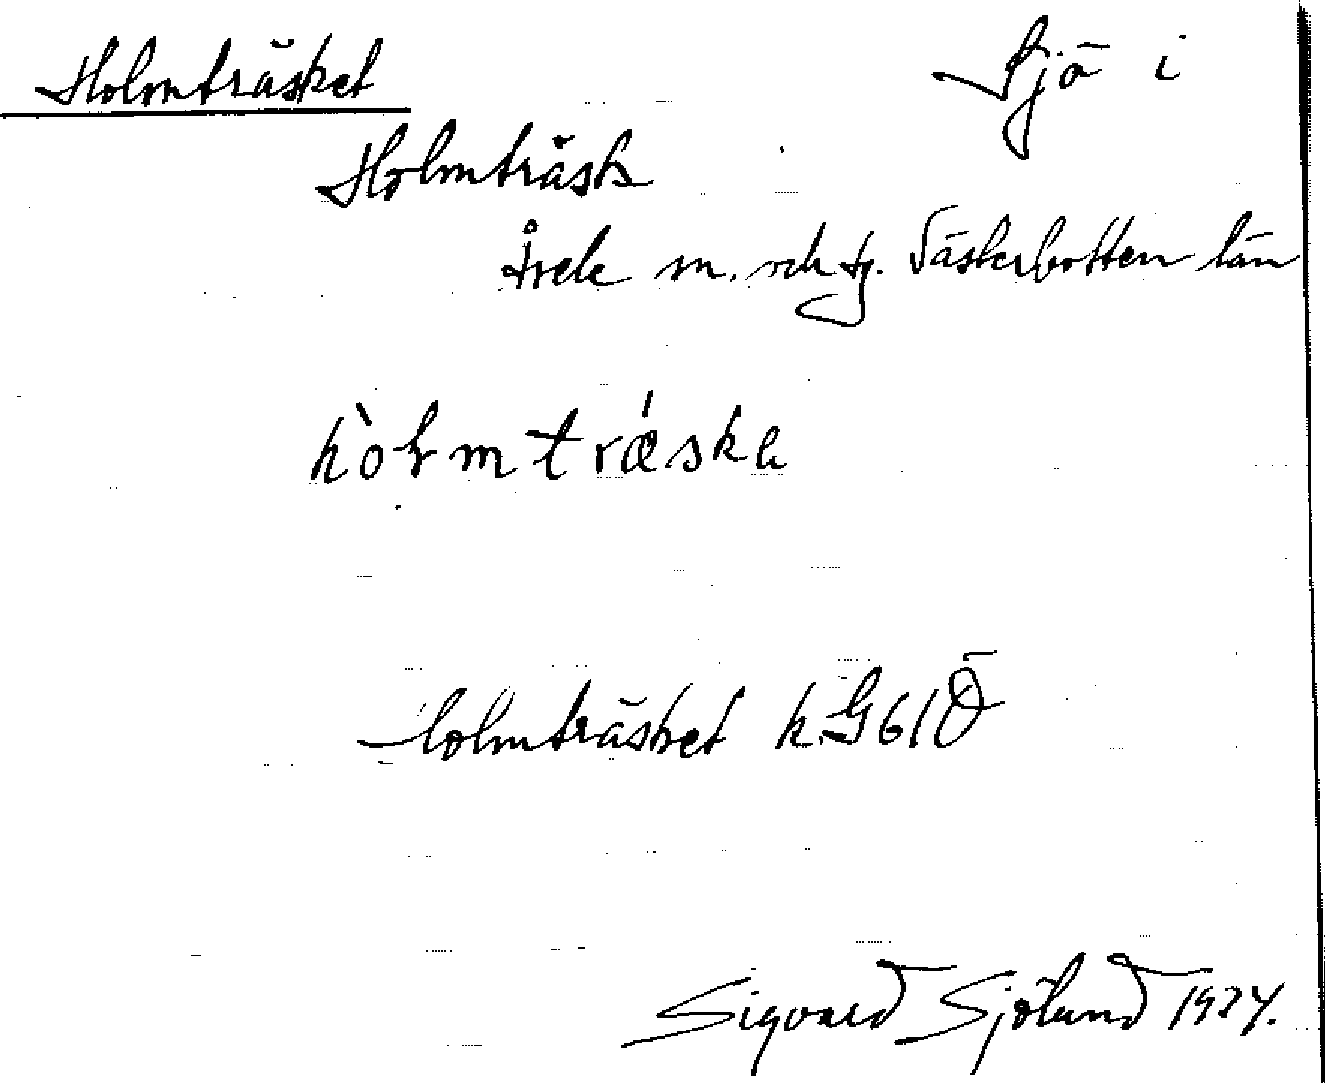 Holmträsket Sjö i
Holmträsk
Åsele sn. och tg. Västerbotten län
hòlmtrǽska
Holmträsket k. G 61 Ö
Sigvard Sjölund 1924.